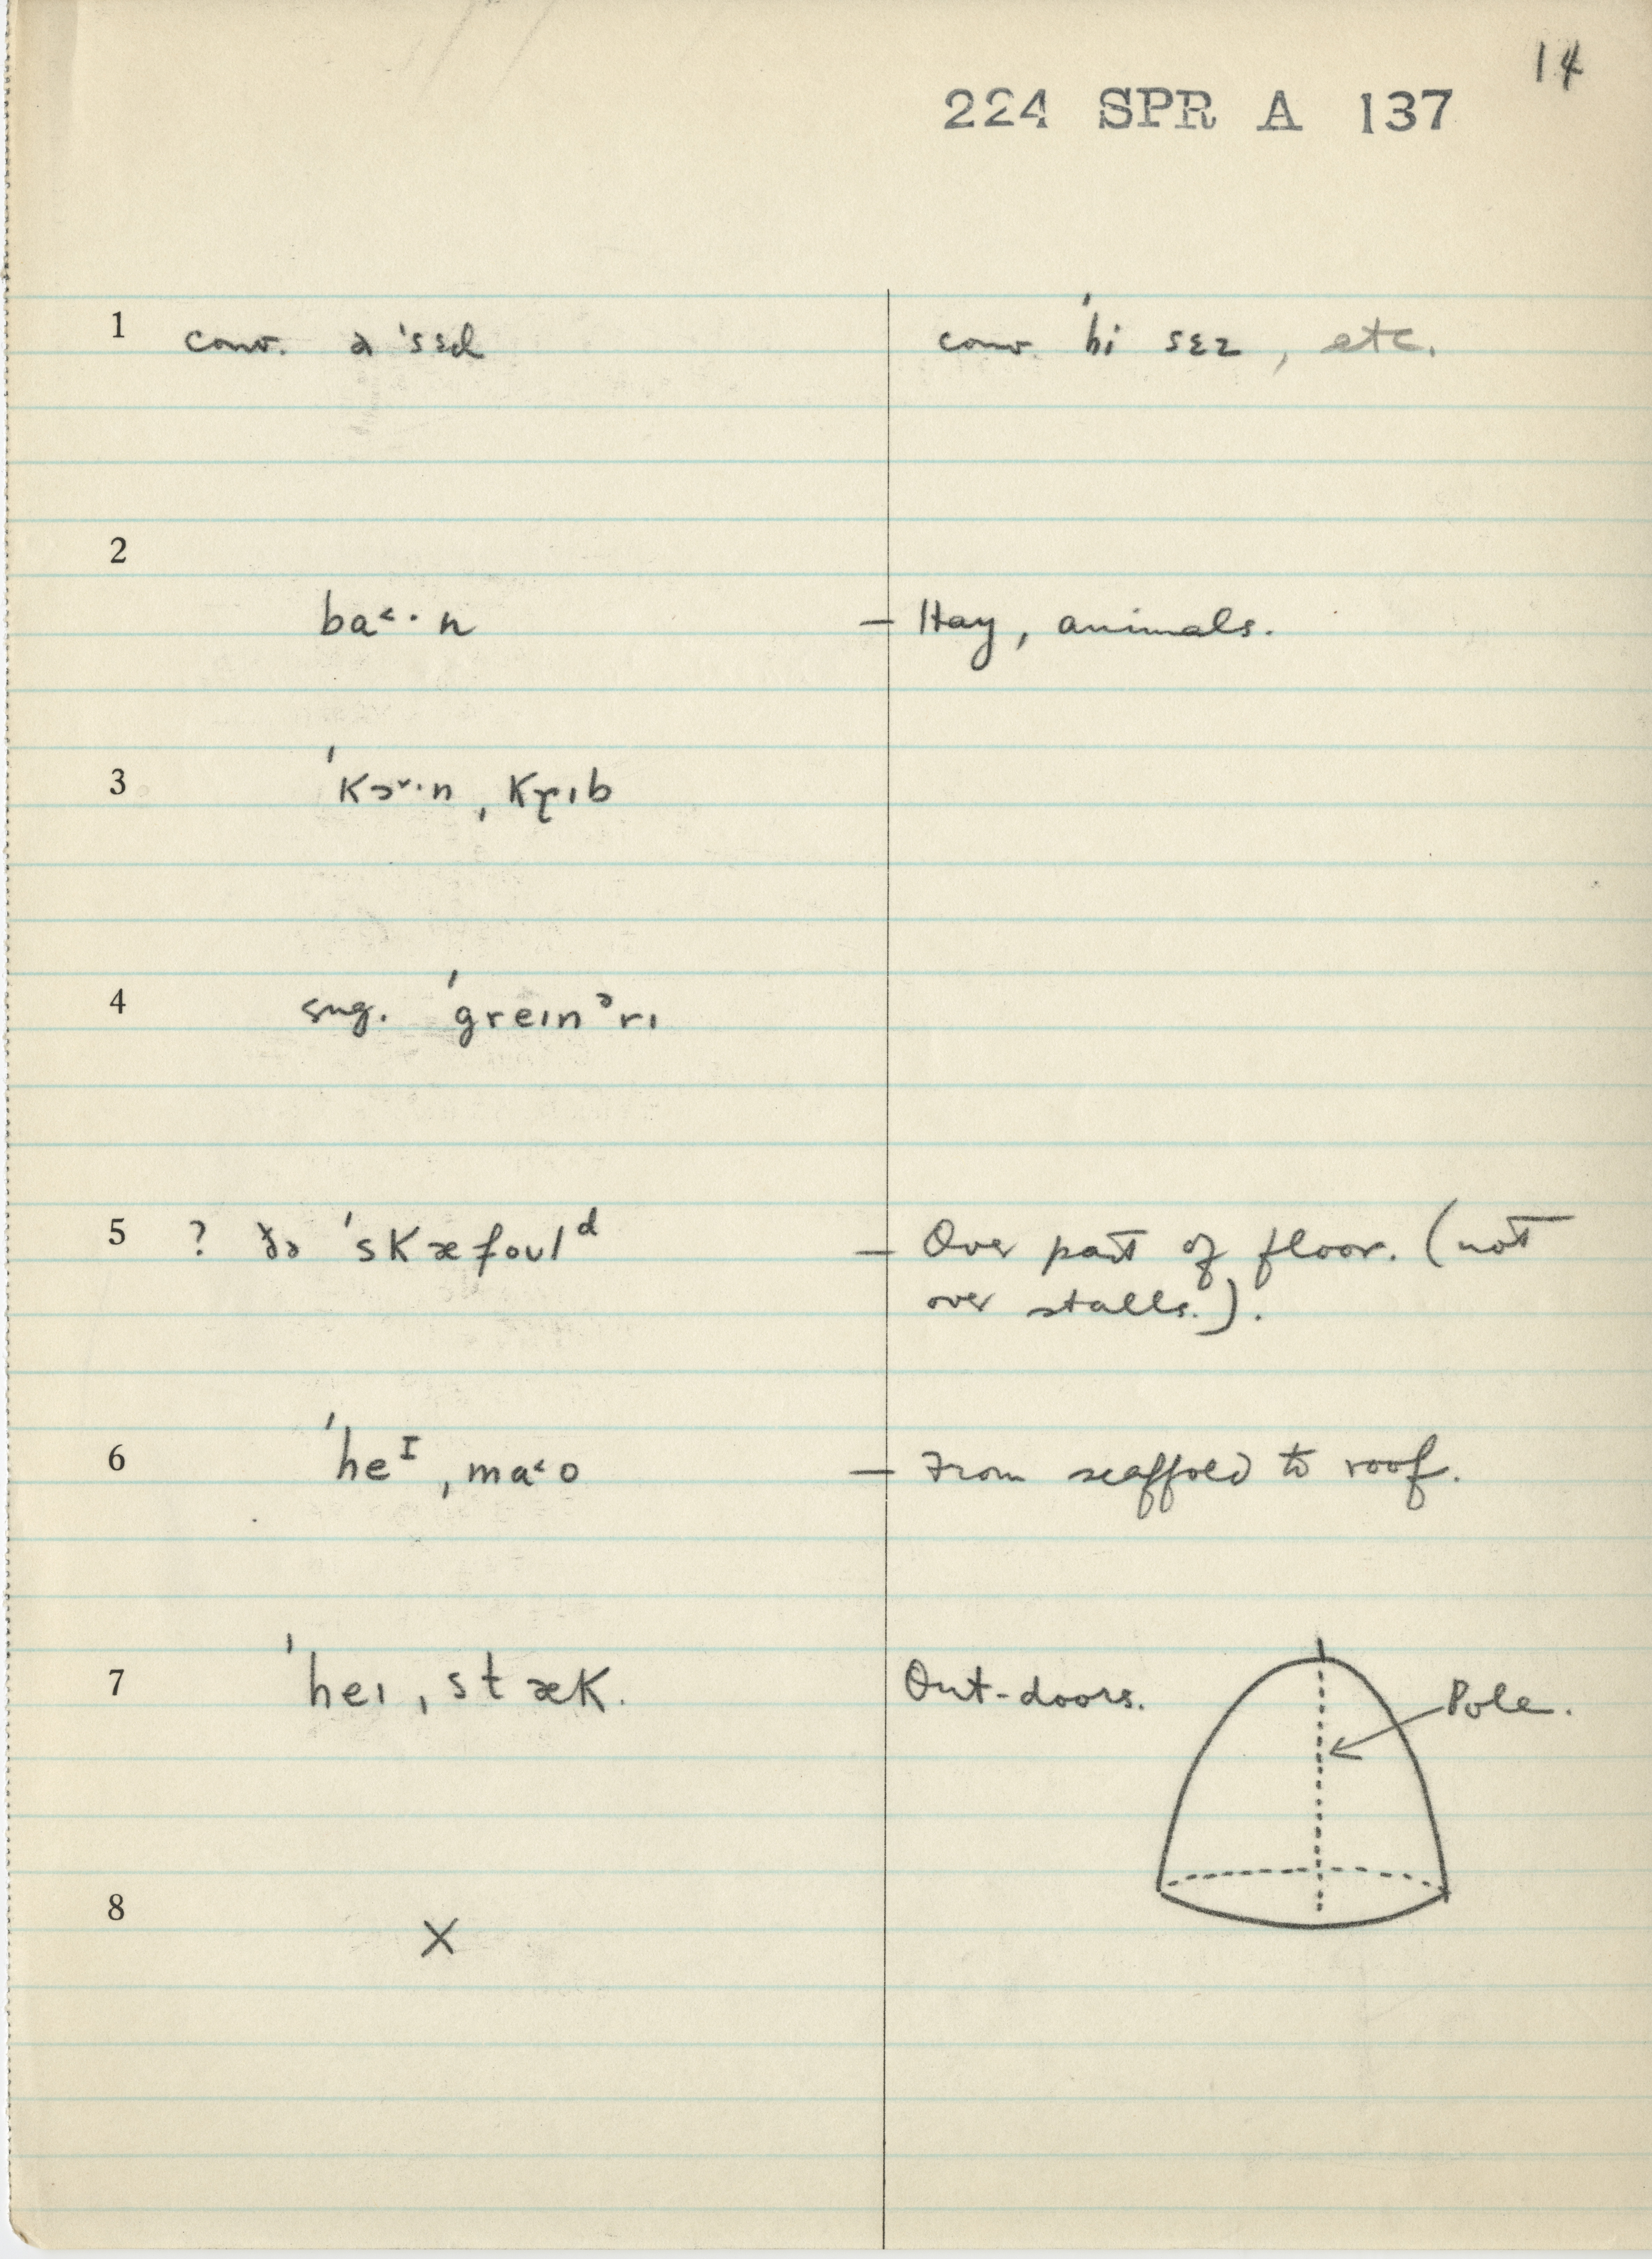 14
224 SPR A 137
1 conv. ə ˈsɛd conv. ˈhi sɛz, etc.
2
ba˂·n — Hay, animals.
3 ˈkɔ˅·n ˌkrɪb
4 sug. ˈgreɪnᵊrɪ
5 ? ðə ˈskæfoʊlᵈ — Over part of floor. (not
over stalls.).
6 ˈheᴵ ˌma˂o — From scaffold to roof.
7 ˈheɪ ˌstæk. Out-doors. Pole.
8 X